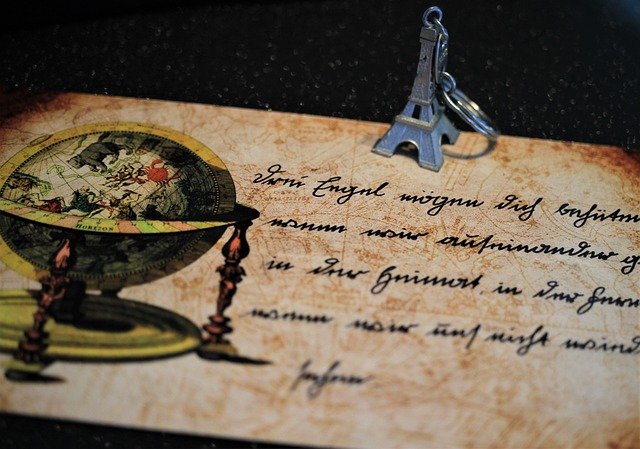 HORIZON
Drei Engel mögen Dich behüten
wenn wir auseinander g
in der Heimat, in der Fern
wenn wir uns nicht wied
sehen